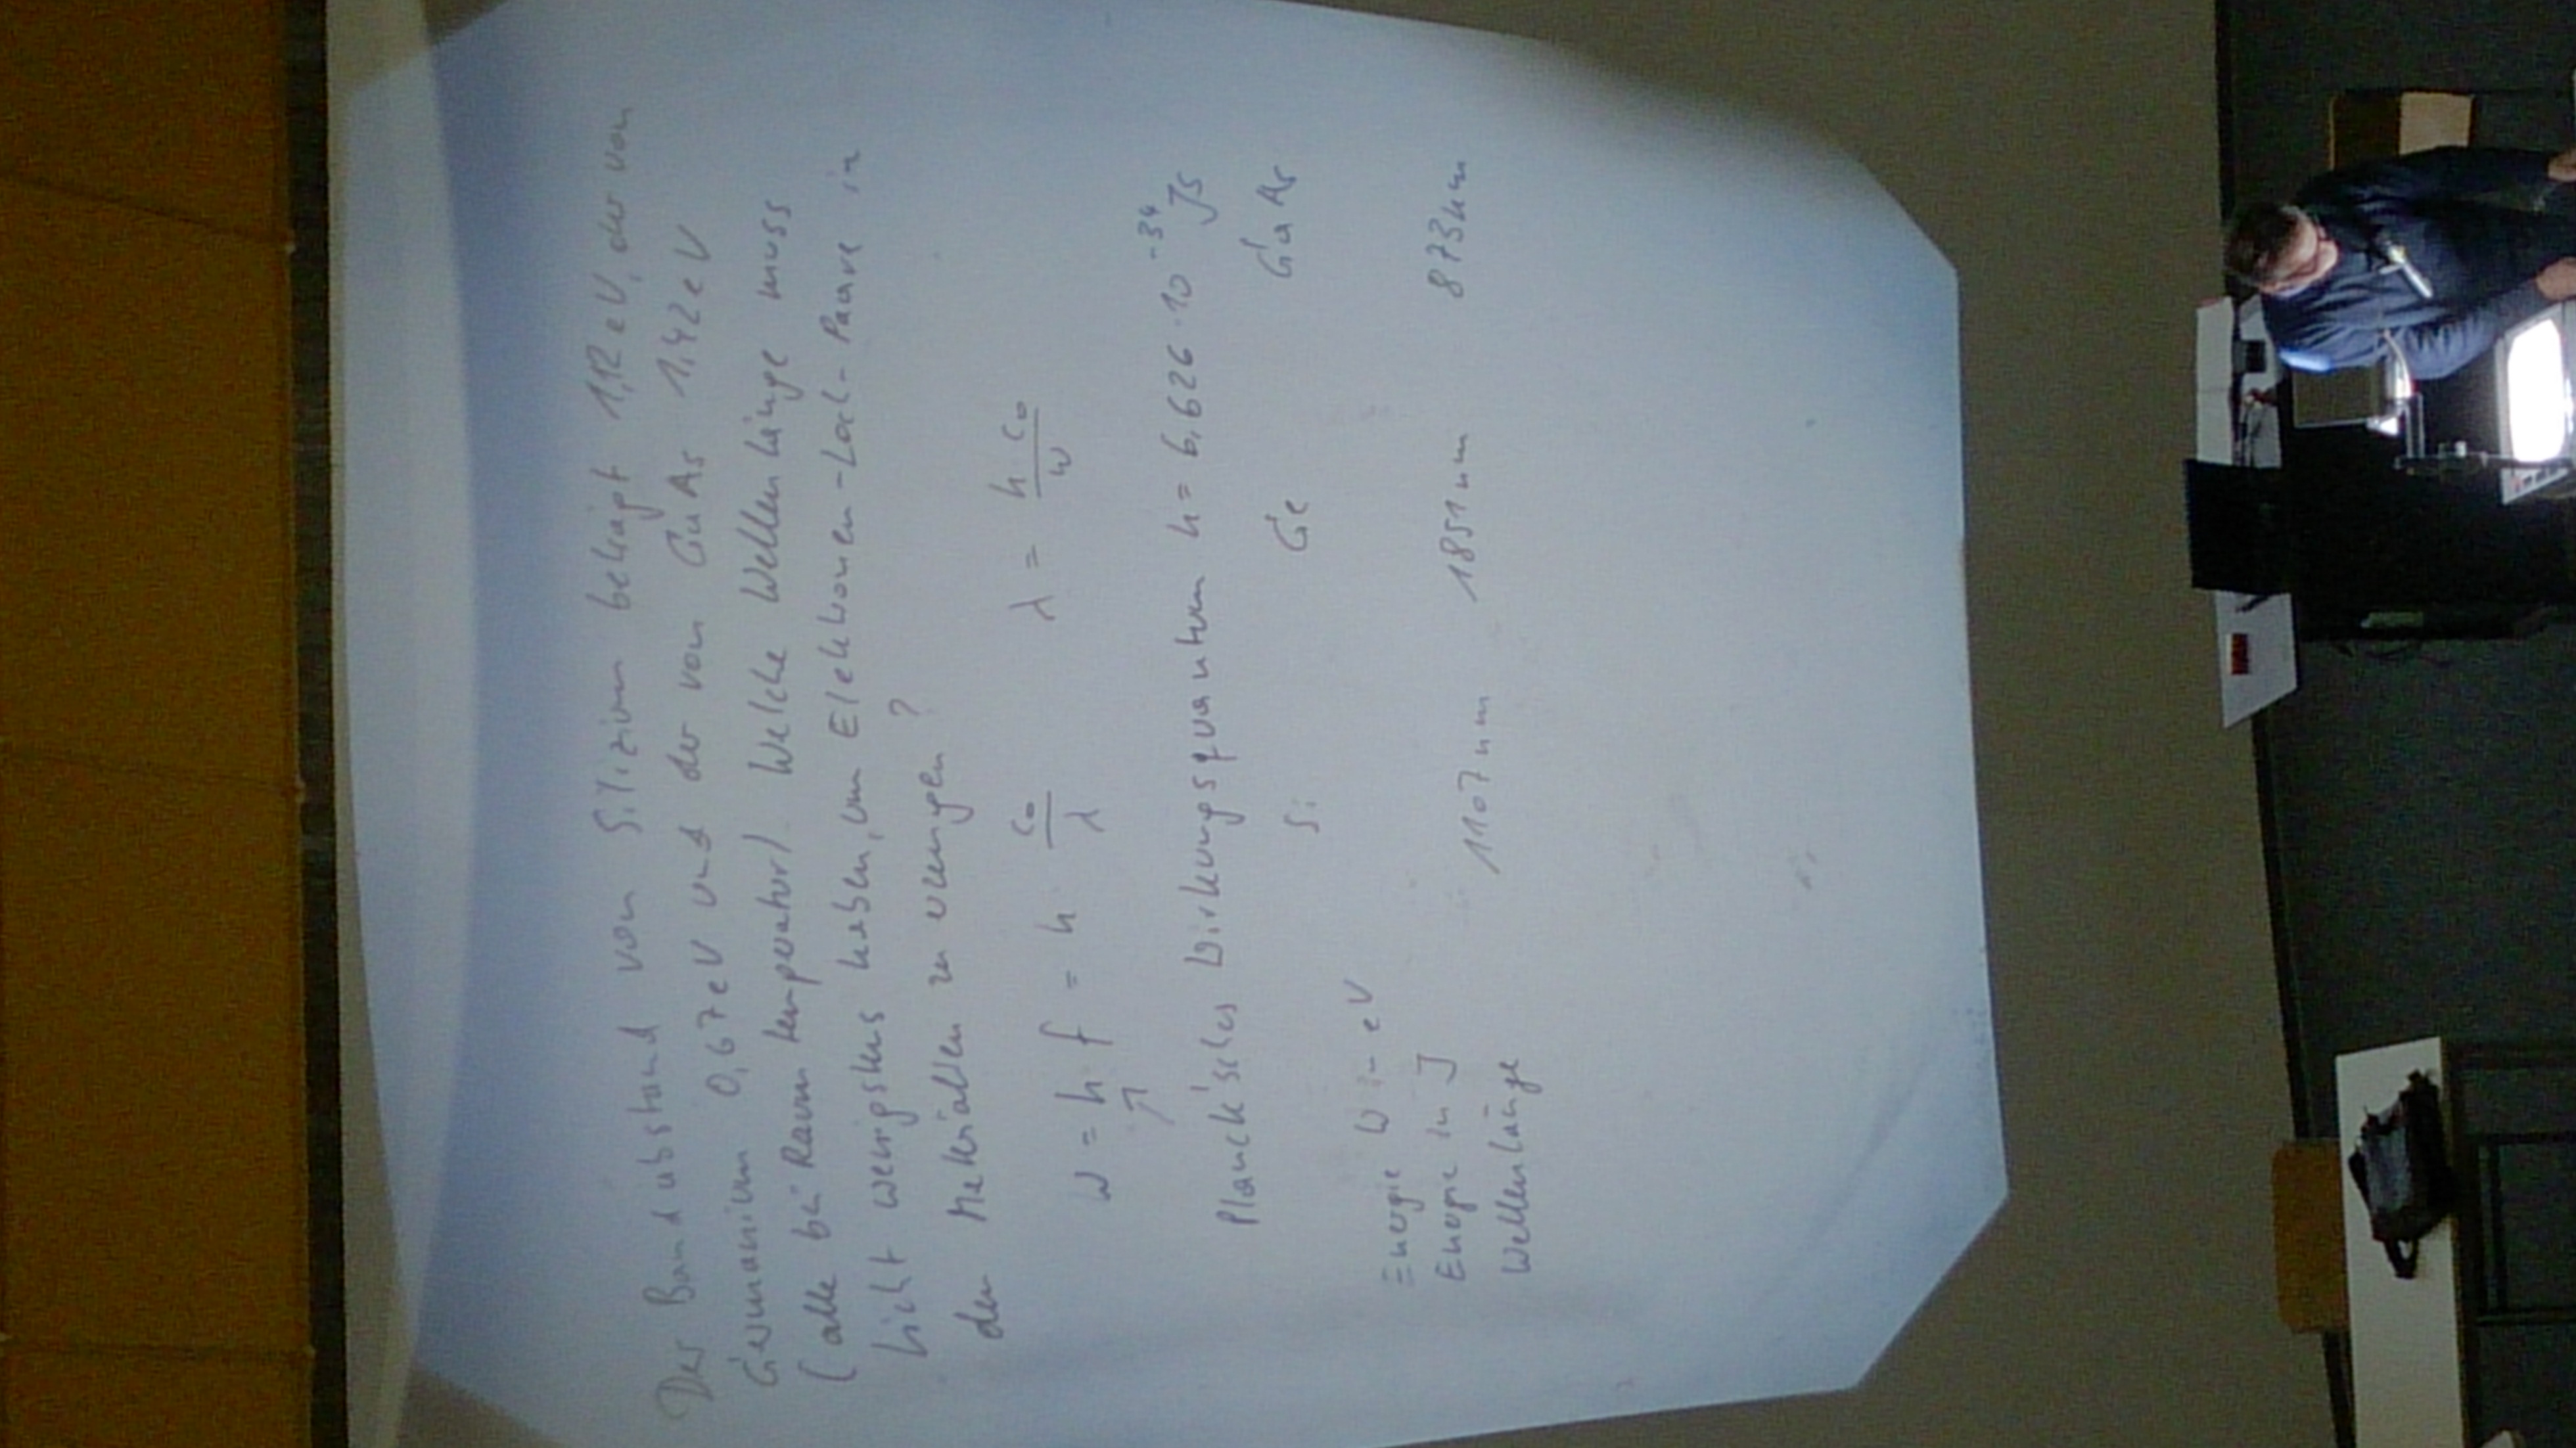 Der Bandabstand von Silizium beträgt 1,12 eV, der von
Germanium 0,67 eV und der von GaAs 1,42 eV
(alle bei Raumtemperatur). Welche Wellenlänge muss
Licht wenigstens haben, um Elektronen-Loch-Paare in
den Materialien zu erzeugen?
W = h · f = h · c₀/λ λ = h · c₀/W
Planck'sches Wirkungsquantum h = 6,626 · 10⁻³⁴ Js
Si Ge GaAs
Energie W in eV
Energie in J
Wellenlänge 1107 nm 1851 nm 873 nm